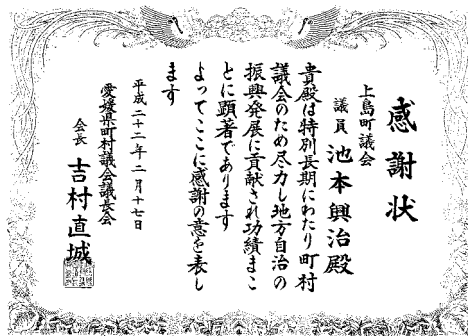 感謝状
上島町議会
議員 池本興治殿
貴殿は特別長期にわたり町村
議会のため尽力し地方自治の
振興発展に貢献され功績まこ
とに顕著であります
よってここに感謝の意を表し
ます
平成二十二年二月十七日
愛媛県町村議会議長会
会長 吉村直城